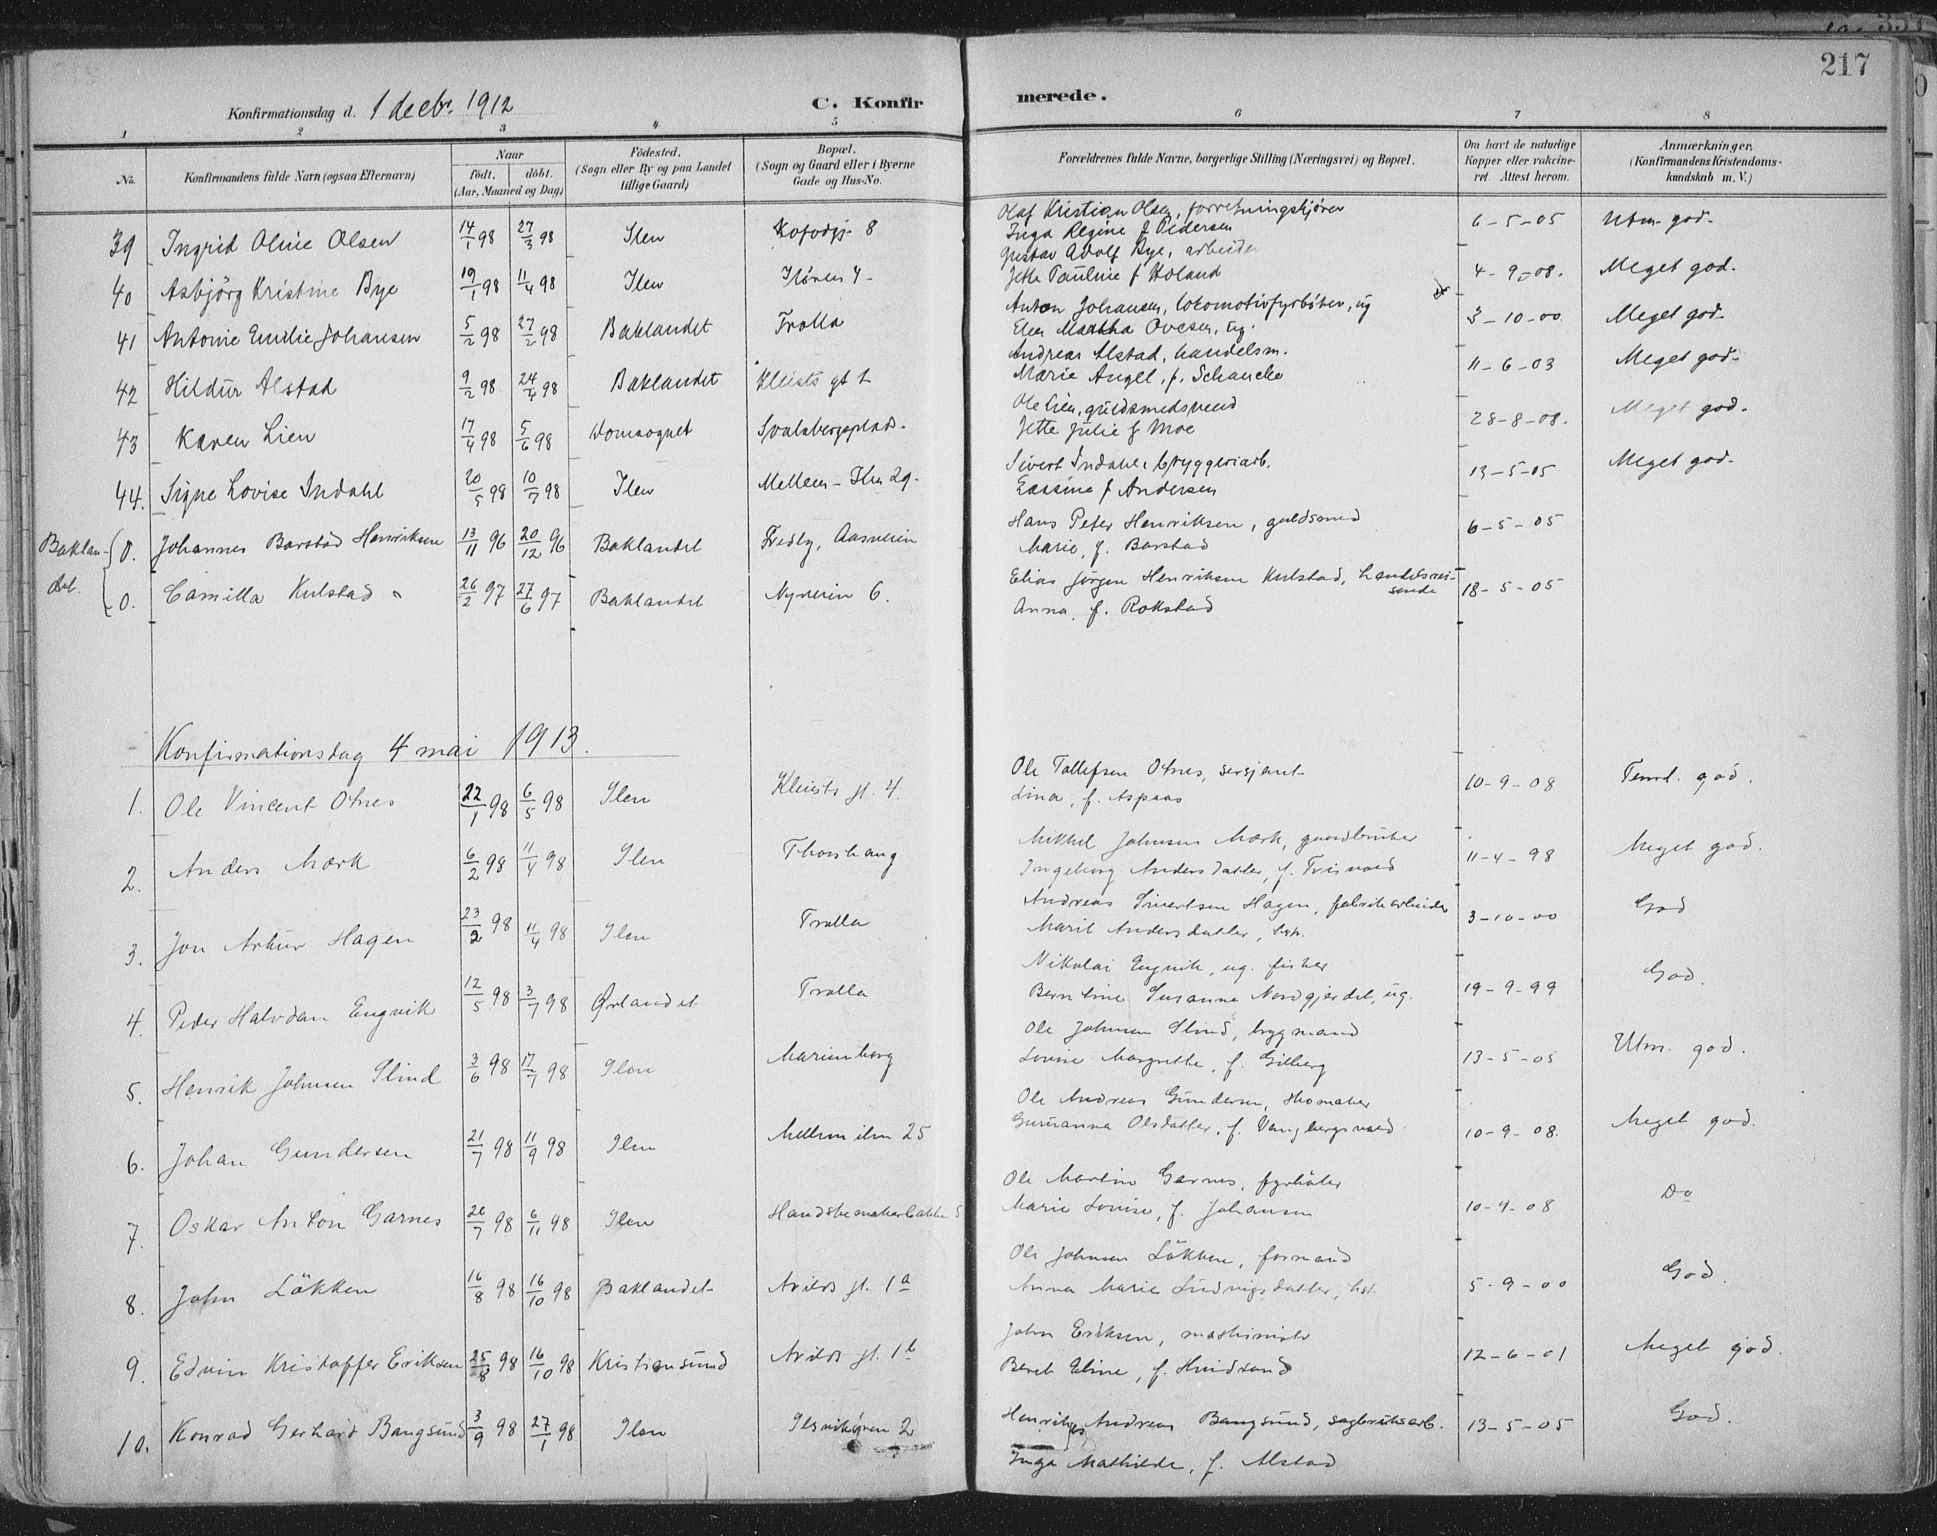 217
Konfirmationsdag d. 1 decbr. 1912 C. Konfir merede.
1 2 3 4 5 6 7 8
No. Konfirmandens fulde Navn (ogsaa Efternavn) Naar født. døbt. (Aar, Maaned og Dag) Fødested. (Sogn eller By og paa Landet tillige Gaard) Bopæl. (Sogn og Gaard eller i Byerne Gade og Hus-No. Forældrenes fulde Navne, borgerlige Stilling (Næringsvei) og Bopæl. Om havt de naturlige Kopper eller vakcineret. Attest herom. Anmærkninger. (Konfirmandens Kristendomskundskab m. V.)
39 Ingrid Oline Olsen 14/1 98 27/3 98 Ilen 8 Olaf Kristian Olsen, forretningskjører 6-5-05 Utm. god.
Inga Regine f Pedersen
40 Asbjörg Kristine Bye 19/1 98 11/4 98 Ilen Ilören 4- Gustav Adolf Bye, arbeider 4-9-08. Meget god.
Jette Pauline f Holand
41 Antonie Emilie Johansen 5/2 98 27/2 98 Baklandet Trolla Anton Johansen, lokomotivfyrbøter, ug 3-10-00. Meget god.
Elen Martha Ovesen, ug.
42 Hildur Alstad 9/2 98 24/4 98 Baklandet Kleists gt 1 Andreas Alstad, handelsm. 11-6-03 Meget god.
Marie Angel, f. Schancke
43 Karen Lien 17/4 98 5/6 98 Domsognet Svalsbergsplads. Ole Lien, guldsmedsvend 28-8-08. Meget god.
Jette Julie f Moe
44. Signe Lovise Indahl 20/5 98 10/7 98 Ilen Mellem-Ilen 29. Sivert Indahl, bryggeriarb. 13-5-05 Meget god.
f Andersen
Baklandet. 0. Johannes Barstad Henriksen 13/11 96 20/12 96 Baklandet Fredly, Aasveien Hans Peter Henriksen, guldsmed 6-5-05
Marie, f. Barstad
0. Camilla Kulstad 26/2 97 27/6 97 Baklandet Nyveien 6. Elias Jörgen Henriksen Kulstad, handelsreisende 18-5-05
Anna, f. Rokstad
Konfirmationsdag 4 mai 1913.
1. Ole Vincent Otnes 22/1 98 6/5 98 Ilen Kleists gt. 4 Ole Tollefsen Otnes, sersjant 10-9-08 Temd. god.
Lina, f. Aspaas
2. Anders Mærk 6/2 98 11/4 98 Ilen Thorshaug Mikkel Johnsen Mærk, gaardbruker 11-4-98 Meget god.
Ingeborg Andersdatter, f. Trisvoed
3. Jon Artur Hagen 23/2 98 11/4 98 Ilen Trolla Andreas Sivertsen Hagen, fabrikarbeider 3-10-00 God
Marit Andersdatter, hst.
4. Peder Halvdan Engvik 12/5 98 3/7 98 Ørlandet Trolla Nikolai Engvik, ug. fisker 19-9-99 God.
Berntine Susanna Nordgjerdet, ug.
5. Henrik Johnsen Slind 3/6 98 17/7 98 Ilen Marienborg Ole Johnsen Slind, bygmand 13-5-05 Utm. god.
Lovise Margrethe, f. Gilberg
6. Johan Gundersen 21/7 98 11/9 98 Ilen Mellem ilen 25 Ole Andreas Gundersen, skomaker 10-9-08. Meget god.
Gurianna Olsdatter, f. Vangbergsvoed
7. Oskar Anton Garnes 26/7 98 6/11 98 Ilen Handskemakerbakken 5 Ole Martin Garnes, fyrbøter 10-9-08 Do
Marie Lovise, f. Johansen
8. John Lökken 16/8 98 16/10 98 Baklandet Arilds gt. 1a Ole Johnsen Lökken, formand 5-9-00 God.
Anna Marie Ludvigsdatter, hst.
9. Edvin Kristoffer Eriksen 25/8 98 16/10 98 Kristiansund Arilds gt. 1b John Eriksen, maskinist 12-6-01 Meget god.
Beret Eline, f. Hindrand
10. Konrad Gerhard Bangsund 3/9 98 27/1 98 Ilen Ilsvikøren 2 Henrik Andreas Bangsund, sagbruksarb. 13-5-05 God.
Inga Mathilde, f. Alstad